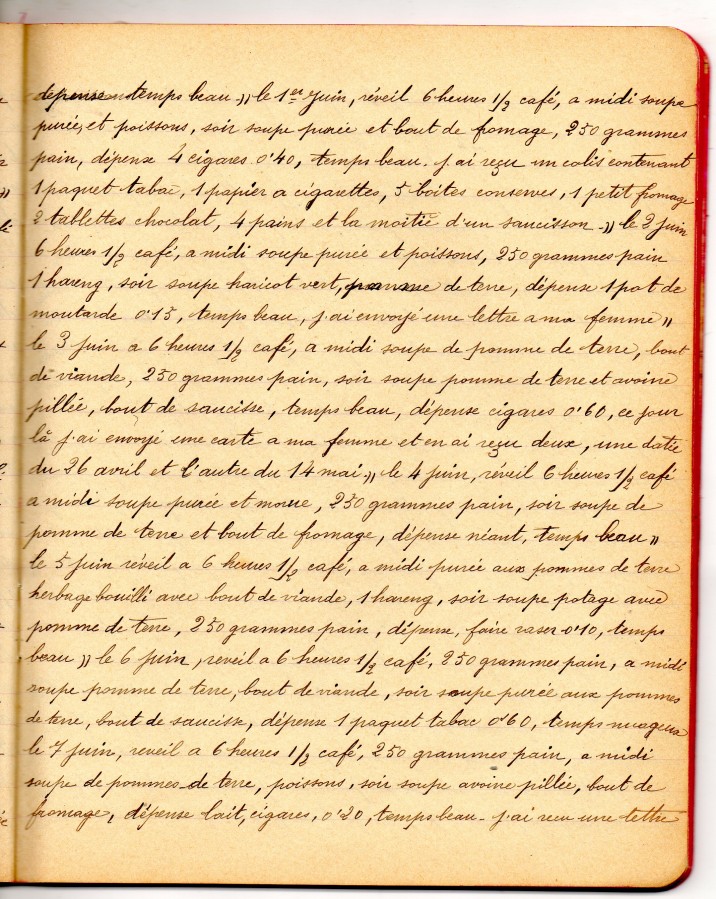 dépense temps beau » le 1er Juin, réveil 6 heures 1/2 café, a midi soupe
purée, et poissons, soir soupe purée et bout de fromage, 250 grammes
pain, dépense 4 cigares 0'40, temps beau. j'ai reçu un colis contenant
1 paquet tabac, 1 papier a cigarettes, 5 boites conserves, 1 petit fromage
2 tablettes chocolat, 4 pains et la moitié d'un saucisson » le 2 juin
6 heures 1/2 café, a midi soupe purée et poissons, 250 grammes pain
1 hareng, soir soupe haricot vert, pomme de terre, dépense 1 pot de
moutarde 0'15, temps beau, j'ai envoyé une lettre a ma femme »
le 3 juin a 6 heures 1/2 café, a midi soupe de pomme de terre, bout
de viande, 250 grammes pain, soir soupe pomme de terre et avoine
pillée, bout de saucisse, temps beau, dépense cigares 0'60, ce jour
là j'ai envoyé une carte a ma femme et en ai reçu deux, une datée
du 26 avril et l'autre du 14 mai » le 4 juin, réveil 6 heures 1/2 café
a midi soupe purée et morue, 250 grammes pain, soir soupe de
pomme de terre et bout de fromage, dépense néant, temps beau »
le 5 juin réveil a 6 heures 1/2 café, a midi purée aux pommes de terre
herbage bouilli avec bout de viande, 1 hareng, soir soupe potage avec
pomme de terre, 250 grammes pain, dépense, faire raser 0'10, temps
beau » le 6 juin, reveil a 6 heures 1/2 café, 250 grammes pain, a midi
soupe pomme de terre, bout de viande, soir soupe purée aux pommes
de terre, bout de saucisse, dépense 1 paquet tabac 0'60, temps nuageux
le 7 juin, reveil a 6 heures 1/2 café, 250 grammes pain, a midi
soupe de pommes de terre, poissons, soir soupe avoine pillée, bout de
fromage, dépense lait, cigares, 0'20, temps beau - j'ai recu une lettre